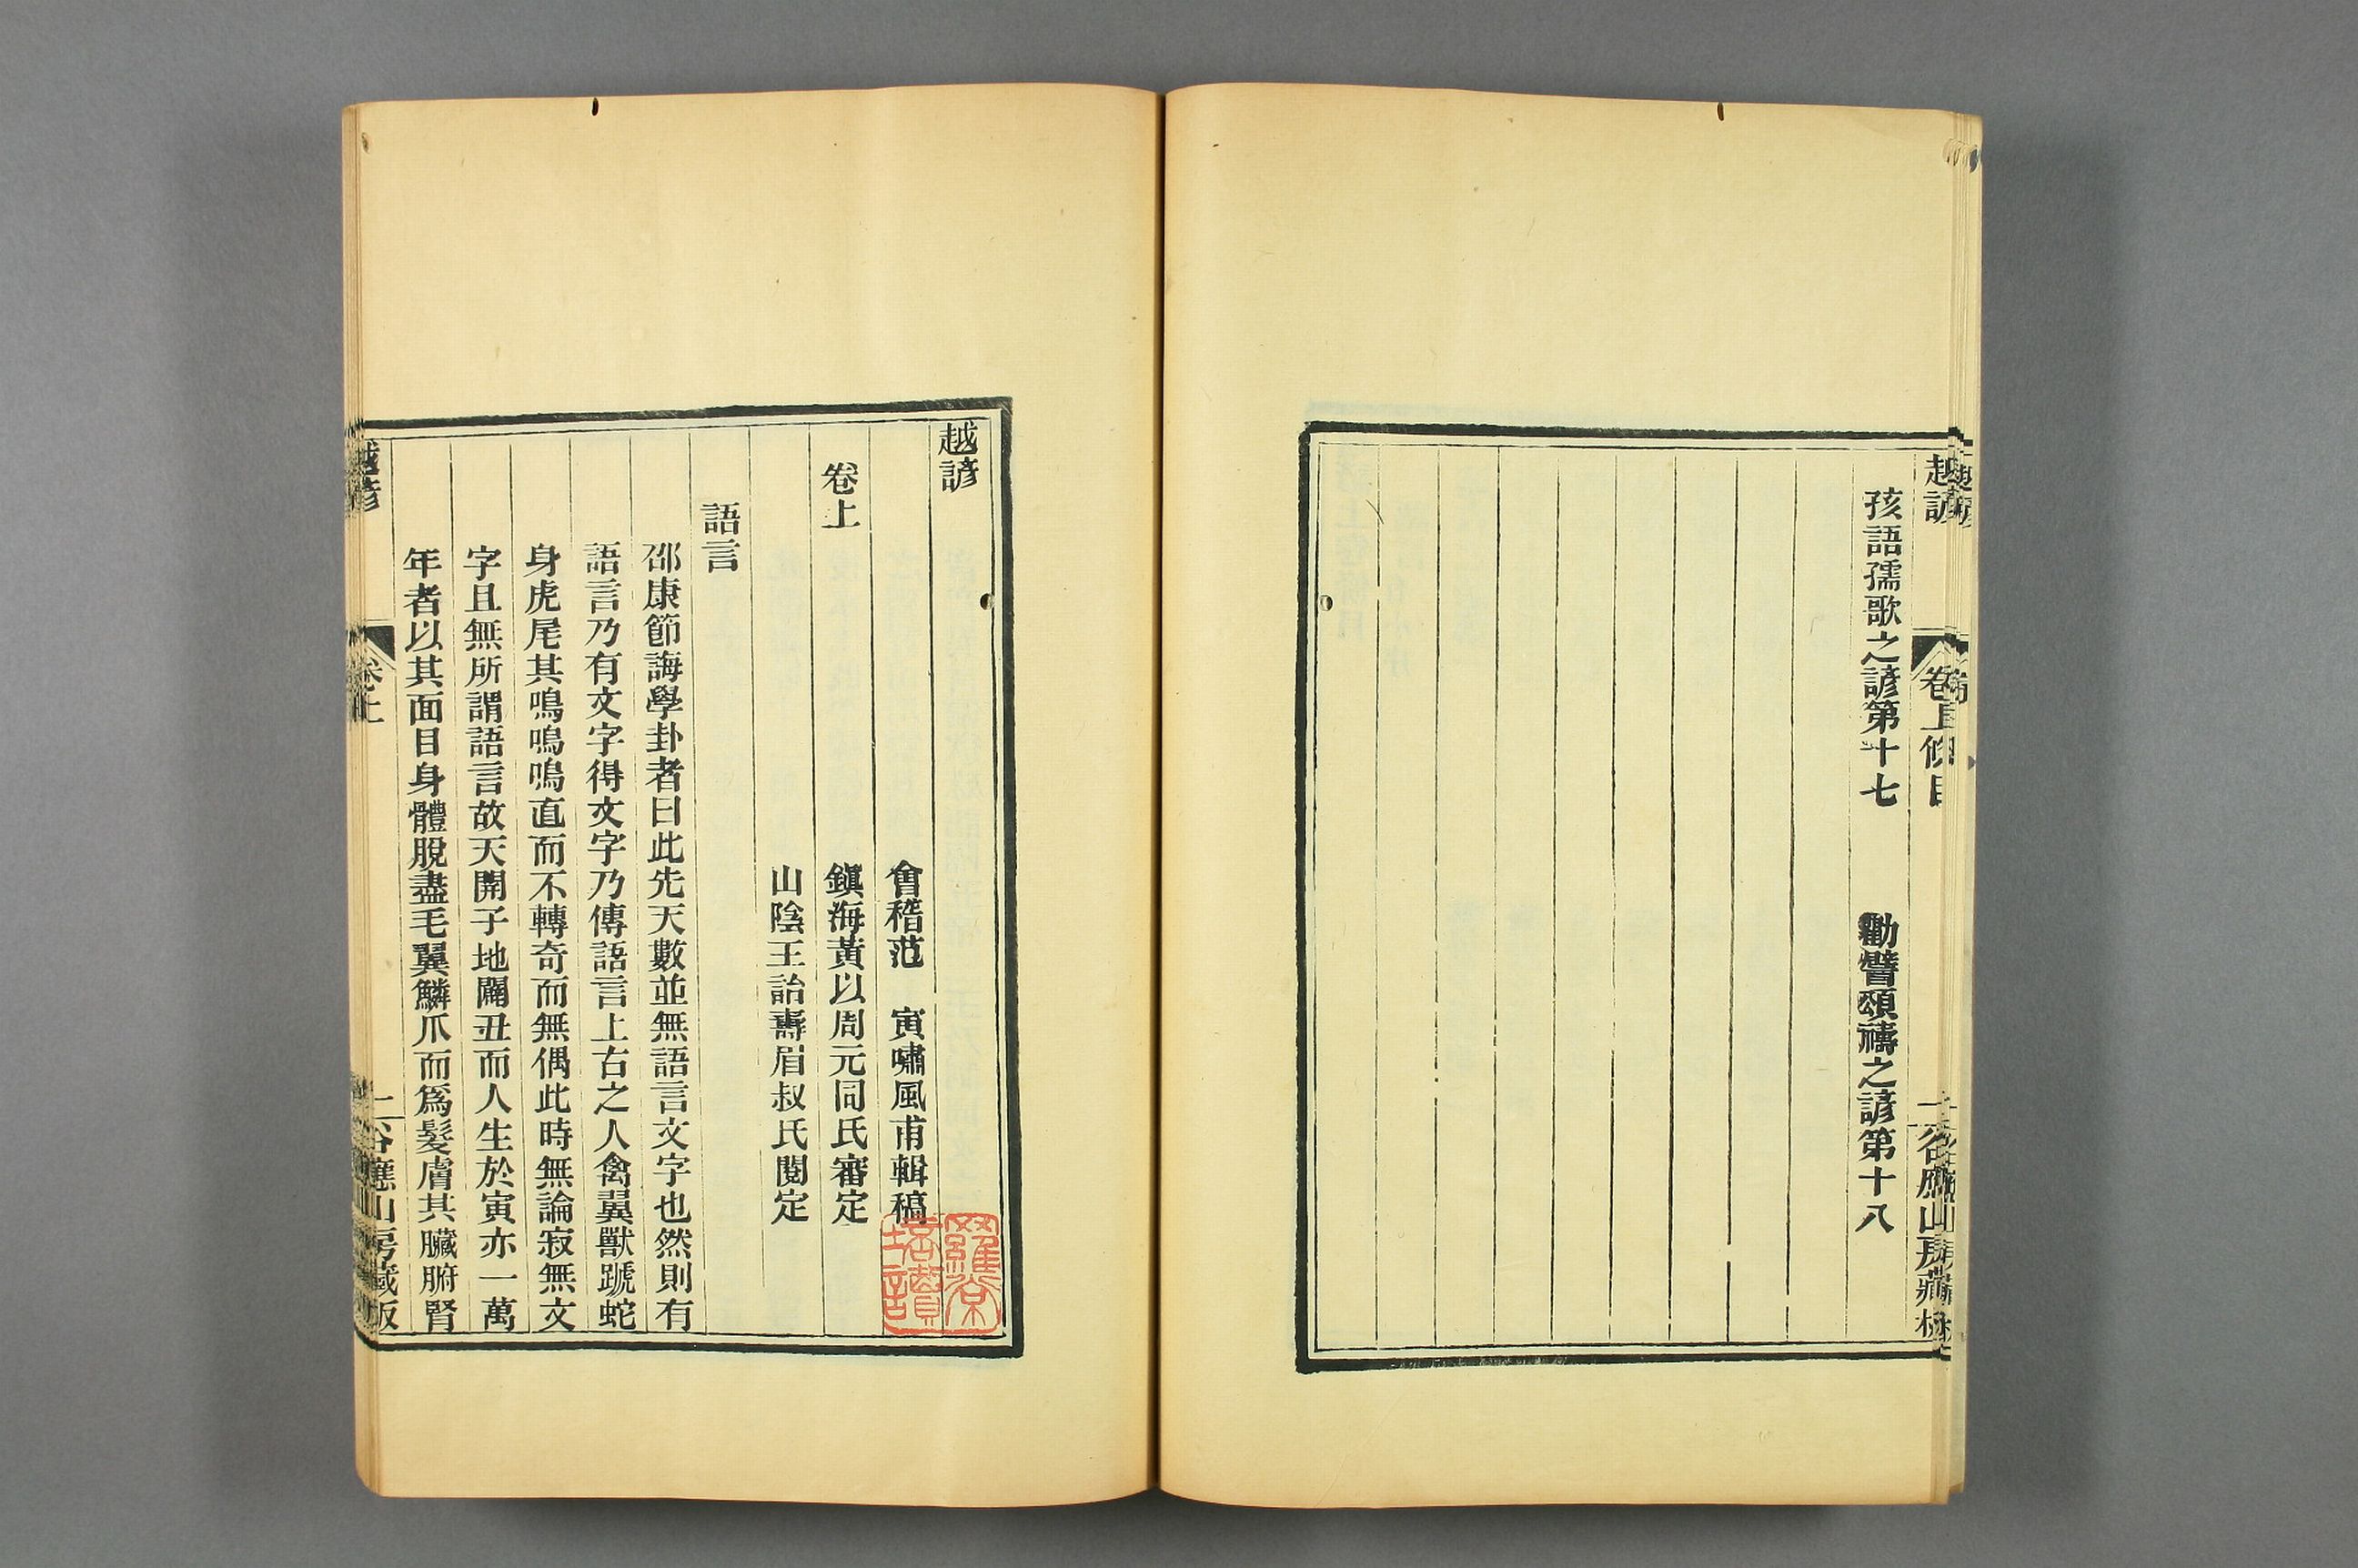 越諺
卷上條目
谷應山房藏板
孩語孺歌之諺第十七　勸譬頌禱之諺第十八
越諺
會稽范　寅嘯風甫輯稿
卷上　鎮海黃以周元同氏審定
山陰王詒壽眉叔氏閱定
語言
邵康節誨學卦者曰此先天數並無語言文字也然則有
語言乃有文字得文字乃傳語言上古之人禽翼獸蹏蛇
身虎尾其鳴鳴鳴直而不轉奇而無偶此時無論寂無文
字且無所謂語言故天開子地闢丑而人生於寅亦一萬
年者以其面目身體脫盡毛翼鱗爪而爲髮膚其臟腑腎
越諺
卷上
二
谷應山房藏板